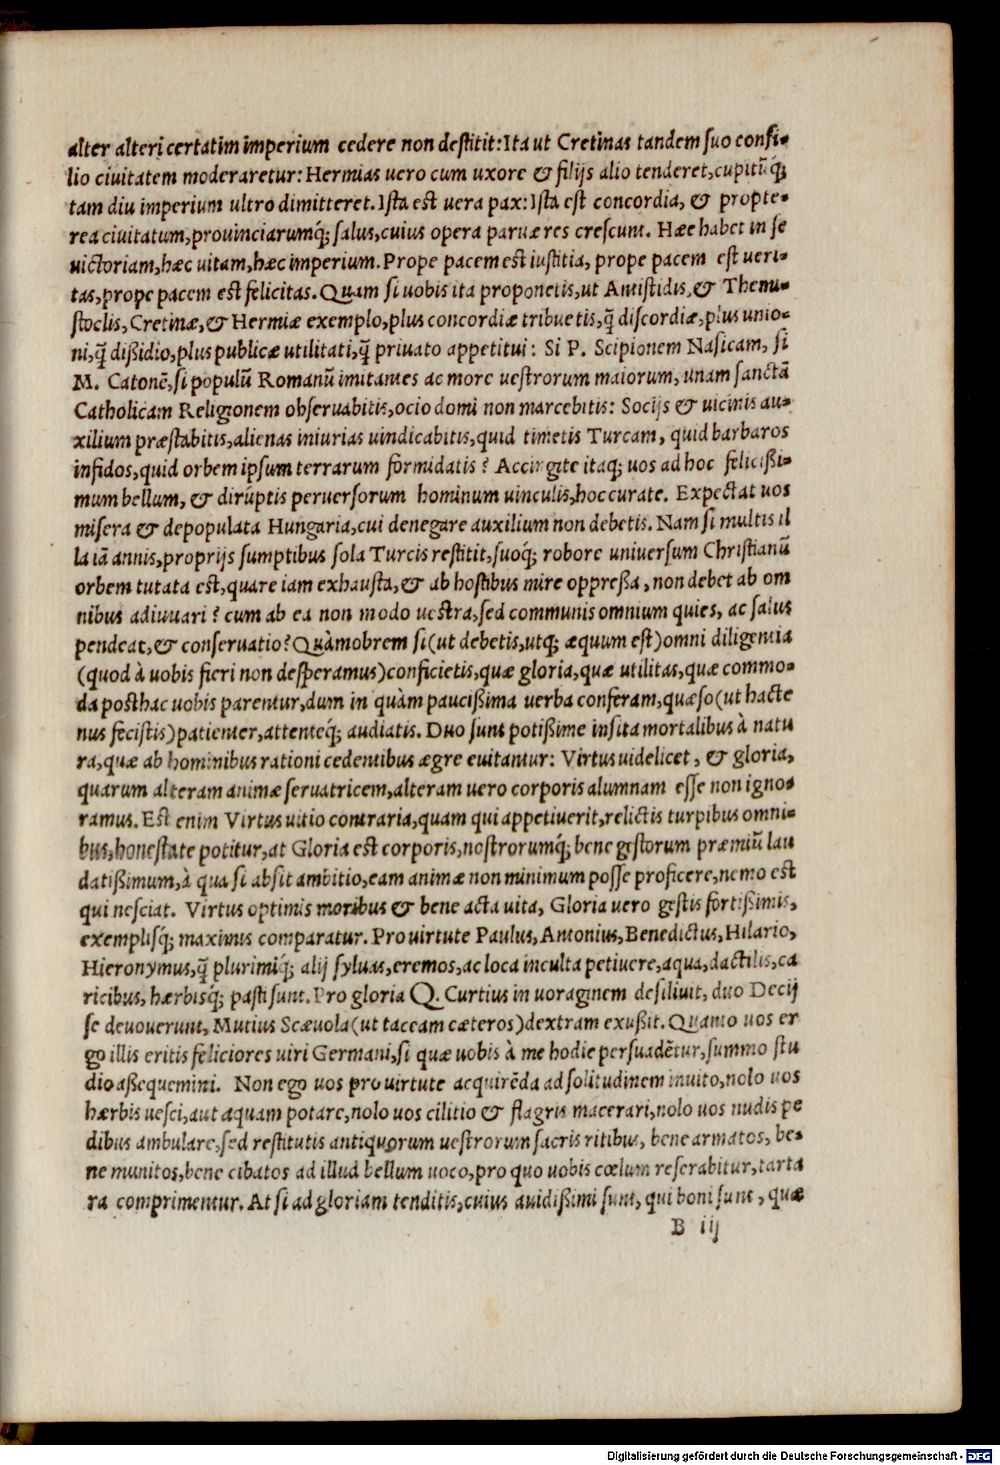 alter alteri certatim imperium cedere non destitit: Ita ut Cretinas tandem suo consi-
lio ciuitatem moderaretur: Hermias uero cum uxore & filijs alio tenderet, cupitũq́;
tam diu imperium ultro dimitteret. Ista est uera pax: Ista est concordia, & propte-
rea ciuitatum, prouinciarumq́; salus, cuius opera paruæ res crescunt. Hæc habet in se
uictoriam, hæc uitam, hæc imperium. Prope pacem est iustitia, prope pacem est ueri-
tas, prope pacem est felicitas. Quam si uobis ita proponetis, ut Antistidis, & Themi-
stoclis, Cretinæ, & Hermiæ exemplo, plus concordiæ tribuetis, q̃ discordiæ, plus unio-
ni, q̃ dißidio, plus publicæ utilitati, q̃ priuato appetitui: Si P. Scipionem Nasicam, si
M. Catonẽ, si populũ Romanũ imitantes ac more uestrorum maiorum, unam sanctã
Catholicam Religionem obseruabitis, ocio domi non marcebitis: Socijs & uicinis au-
xilium præstabitis, alienas iniurias uindicabitis, quid timetis Turcam, quid barbaros
infidos, quid orbem ipsum terrarum formidatis? Accingite itaq; uos ad hoc felicißi-
mum bellum, & dirúptis peruersorum hominum uinculis, hoc curate. Expectat uos
misera & depopulata Hungaria, cui denegare auxilium non debetis. Nam si multis il
la iã annis, proprijs sumptibus sola Turcis restitit, suoq́; robore uniuersum Christianũ
orbem tutata est, quare iam exhausta, & ab hostibus mire oppreßa, non debet ab om
nibus adiuuari? cum ab ea non modo uestra, sed communis omnium quies, ac salus
pendeat, & conseruatio? Quàmobrem si (ut debetis, utq; æquum est) omni diligentia
(quod à uobis fieri non desperamus) conficietis, quæ gloria, quæ utilitas, quæ commo-
da posthac uobis parentur, dum in quàm paucißima uerba conferam, quæso (ut hacte
nus fecistis) patienter, attenteq́; audiatis. Duo sunt potißime insita mortalibus à natu
ra, quæ ab hominibus rationi cedentibus ægre euitantur: Virtus uidelicet, & gloria,
quarum alteram animæ seruatricem, alteram uero corporis alumnam esse non igno-
ramus. Est enim Virtus uitio contraria, quam qui appetiuerit, relictis turpibus omni-
bus, honestate potitur, at Gloria est corporis, nostrorumq́; bene gestorum præmiũ lau
datißimum, à qua si absit ambitio, eam animæ non minimum posse proficere, nemo est
qui nesciat. Virtus optimis moribus & bene acta uita, Gloria uero gestis fortißimis,
exemplisq́; maximis comparatur. Pro uirtute Paulus, Antonius, Benedictus, Hilario,
Hieronymus, q̃ plurimiq́; alij syluas, eremos, ac loca inculta petiuere, aqua, dactilis, ca
ricibus, hærbisq́; pasti sunt. Pro gloria Q. Curtius in uoraginem desiliuit, duo Decij
se deuouerunt, Mutius Scæuola (ut taceam cæteros) dextram exußit. Quanto uos er
go illis eritis feliciores uiri Germani, si quæ uobis à me hodie persuadẽtur, summo stu
dio aßequemini. Non ego uos pro uirtute acquirẽda ad solitudinem inuito, nolo uos
hærbis uesci, aut aquam potare, nolo uos cilitio & flagris macerari, nolo uos nudis pe
dibus ambulare, sed restitutis antiquorum uestrorum sacris ritibus, bene armatos, be-
ne munitos, bene cibatos ad illud bellum uoco, pro quo uobis cœlum reserabitur, tarta
ra comprimentur. At si ad gloriam tenditis, cuius auidißimi sunt, qui boni sunt, quæ
B iij
Digitalisierung gefördert durch die Deutsche Forschungsgemeinschaft - DFG